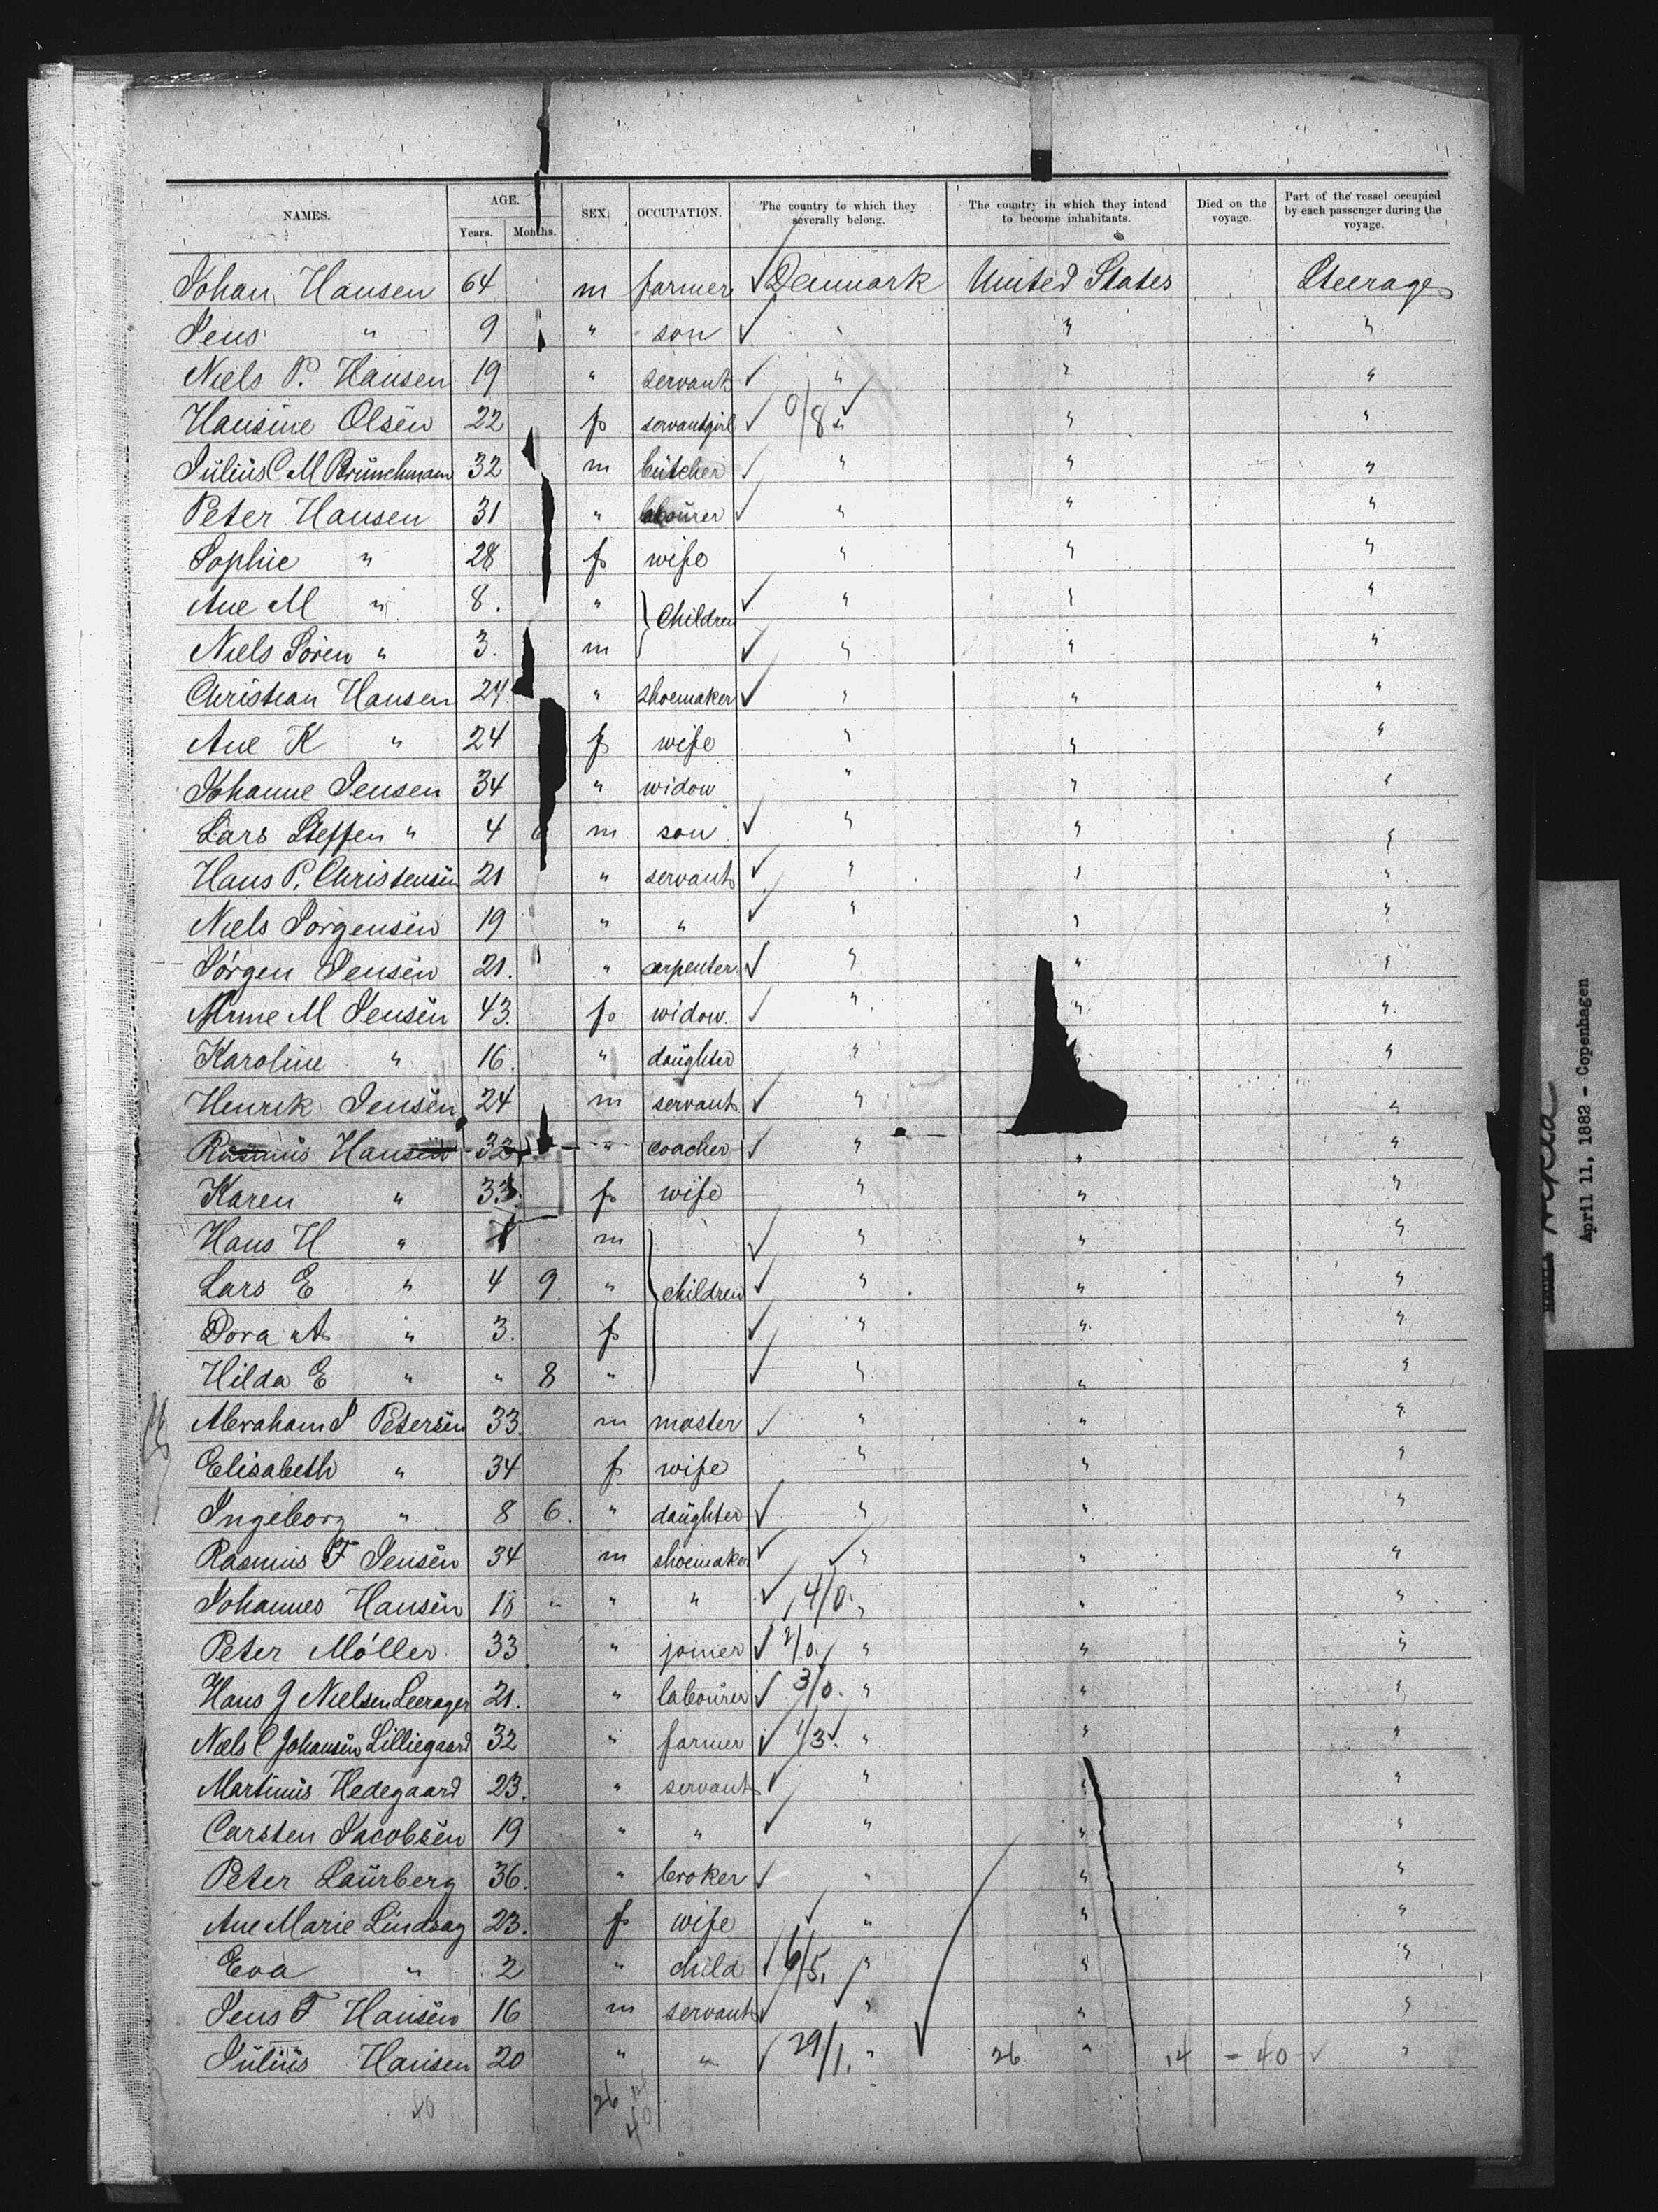 NAMES. AGE. Years. Months. SEX. OCCUPATION. The country to which they severally belong. The country in which they intend to become inhabitants. Died on the voyage. Part of the vessel occupied by each passenger during the voyage.
Johan Hansen 64 m farmer Denmark United States Steerage
Jens " 9 " son " " "
Niels P. Hansen 19 " servant " " "
Hansine Olsen 22 f servantgirl 0/8 " " "
Julius C M Brünchmann 32 m butcher " " "
Peter Hansen 31 " labourer " " "
Sophie " 28 f wife " " "
Ane M " 8. " } Children " " "
Niels Sören " 3. m " " "
Christian Hansen 24 " shoemaker " " "
Ane K " 24 f wife " " "
Johanne Jensen 34 " widow " " "
Lars Steffen " 4 m son " " "
Hans P. Christensen 21 " servant " " "
Niels Jörgensen 19 " " " " "
Jörgen Jensen 21. " carpenter " " "
Anne M Jensen 43. f widow. " " "
Karoline " 16. " daughter " " "
Henrik Jensen 24 m servant " "
Rasmus Hansen 32 " coacher " " "
Karen " 33. f wife " " "
Hans H " m " " "
Lars E " 4 9. " } children " " "
Dora A " 3. f " " "
Hilda E " " 8 " " " "
Abraham S Petersen 33. m master " " "
Elisabeth " 34 f wife " " "
Ingeborg " 8 6. " daughter " " "
Rasmus F Jensen 34 m shoemaker " " "
Johannes Hansen 18 " " 4/0. " " "
Peter Möller 33 " joiner 2/0. " " "
Hans J Nielsen Leerager 21. " labourer 3/0. " " "
Niels C Johansen Lilliegaard 32 " farmer 1/3. " " "
Martinus Hedegaard 23. " servant " " "
Carsten Jacobsen 19 " " " " "
Peter Laurberg 36. " broker " " "
Ane Marie Lindsag 23. f wife " " "
Eva " 2 " child 6/5. " " "
Jens F Hansen 16 m servant " " "
Julius Hansen 20 " " 29/1. " 26 " 14 = 40 "
40 26 14
40
April 11, 1882 - Copenhagen